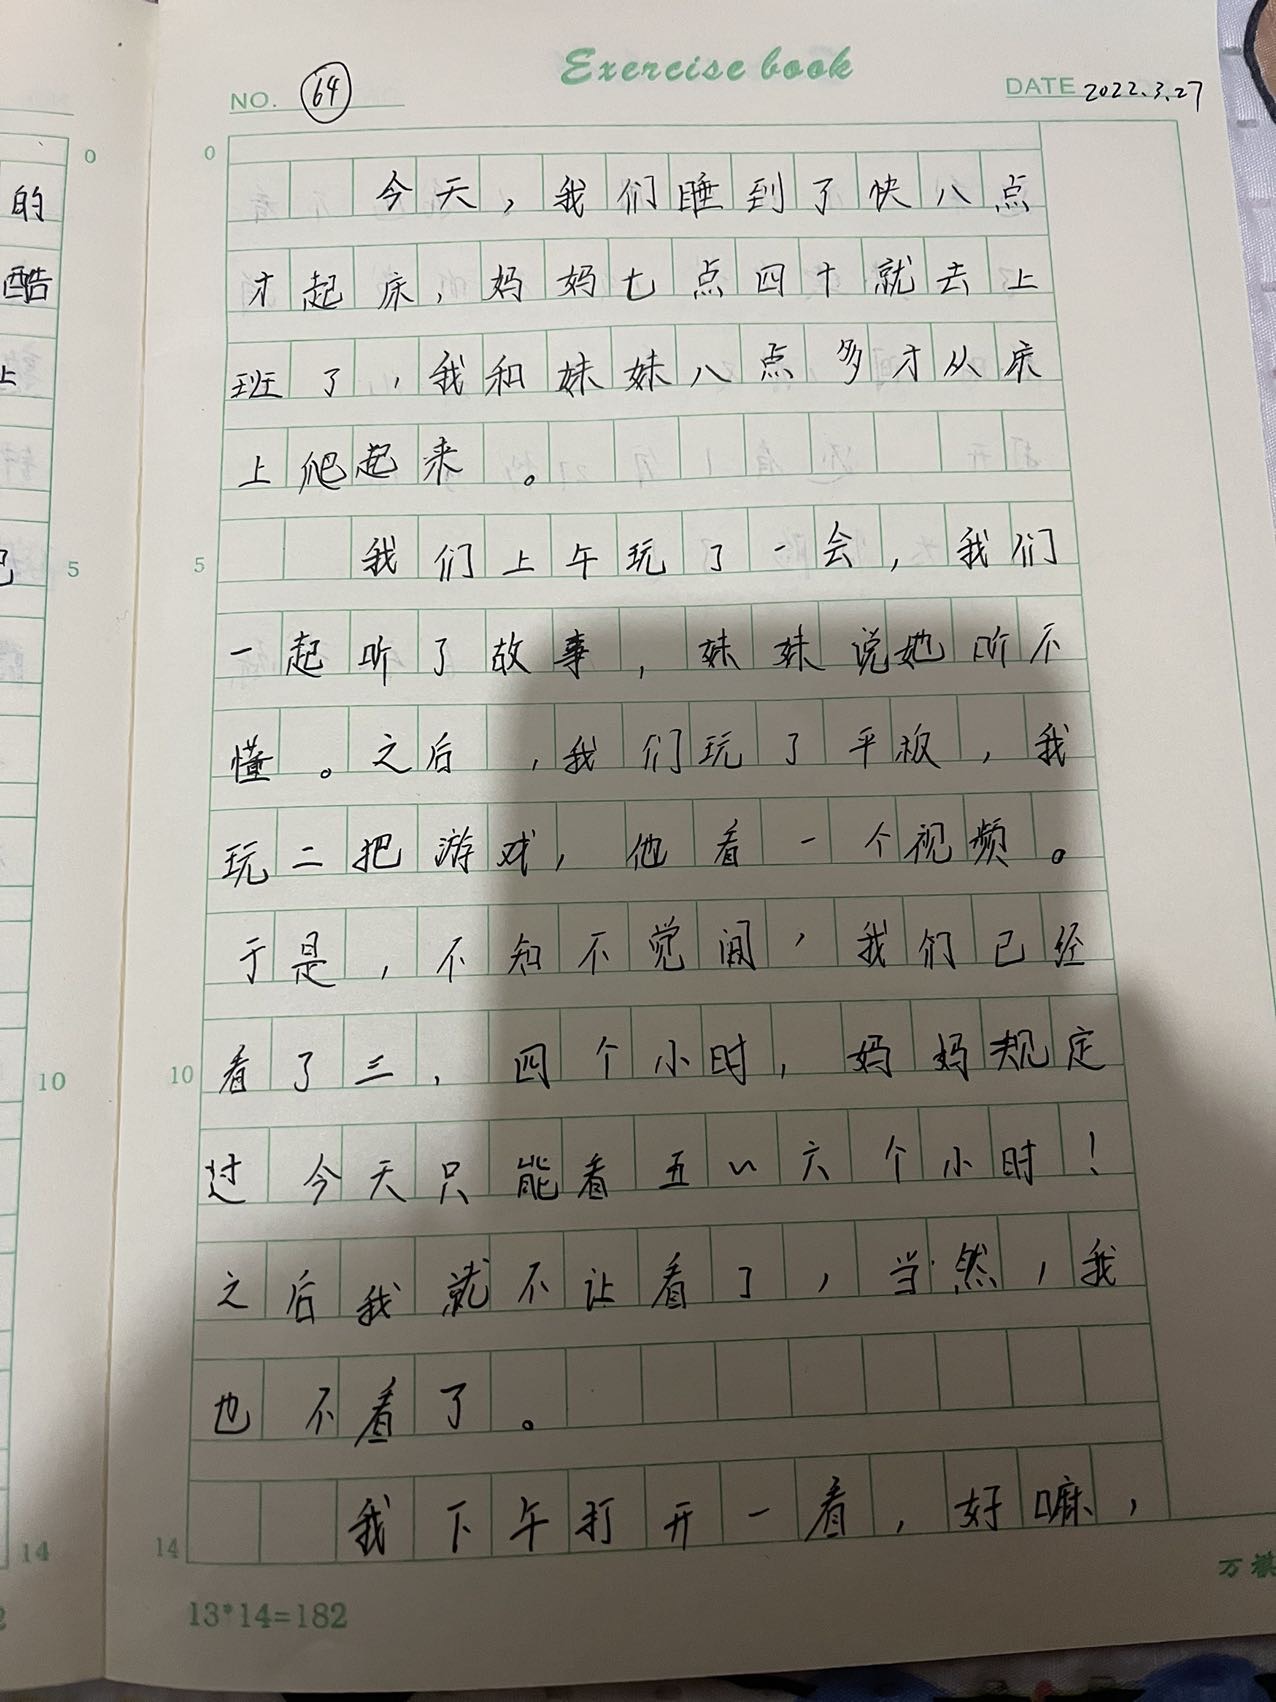 Exercise book
NO. 64
DATE 2022.3.27
今天，我们睡到了快八点
才起床，妈妈七点四十就去上
班了，我和妹妹八点多才从床
上爬起来。
我们上午玩了一会，我们
一起听了故事，妹妹说她听不
懂。之后，我们玩了平板，我
玩二把游戏，他看一个视频。
于是，不知不觉间，我们已经
看了三、四个小时，妈妈规定
过今天只能看五~六个小时！
之后我就不让看了，当然，我
也不看了。
我下午打开一看，好嘛，
0
5
10
14
13*14=182
的
酷
上
0
5
10
14